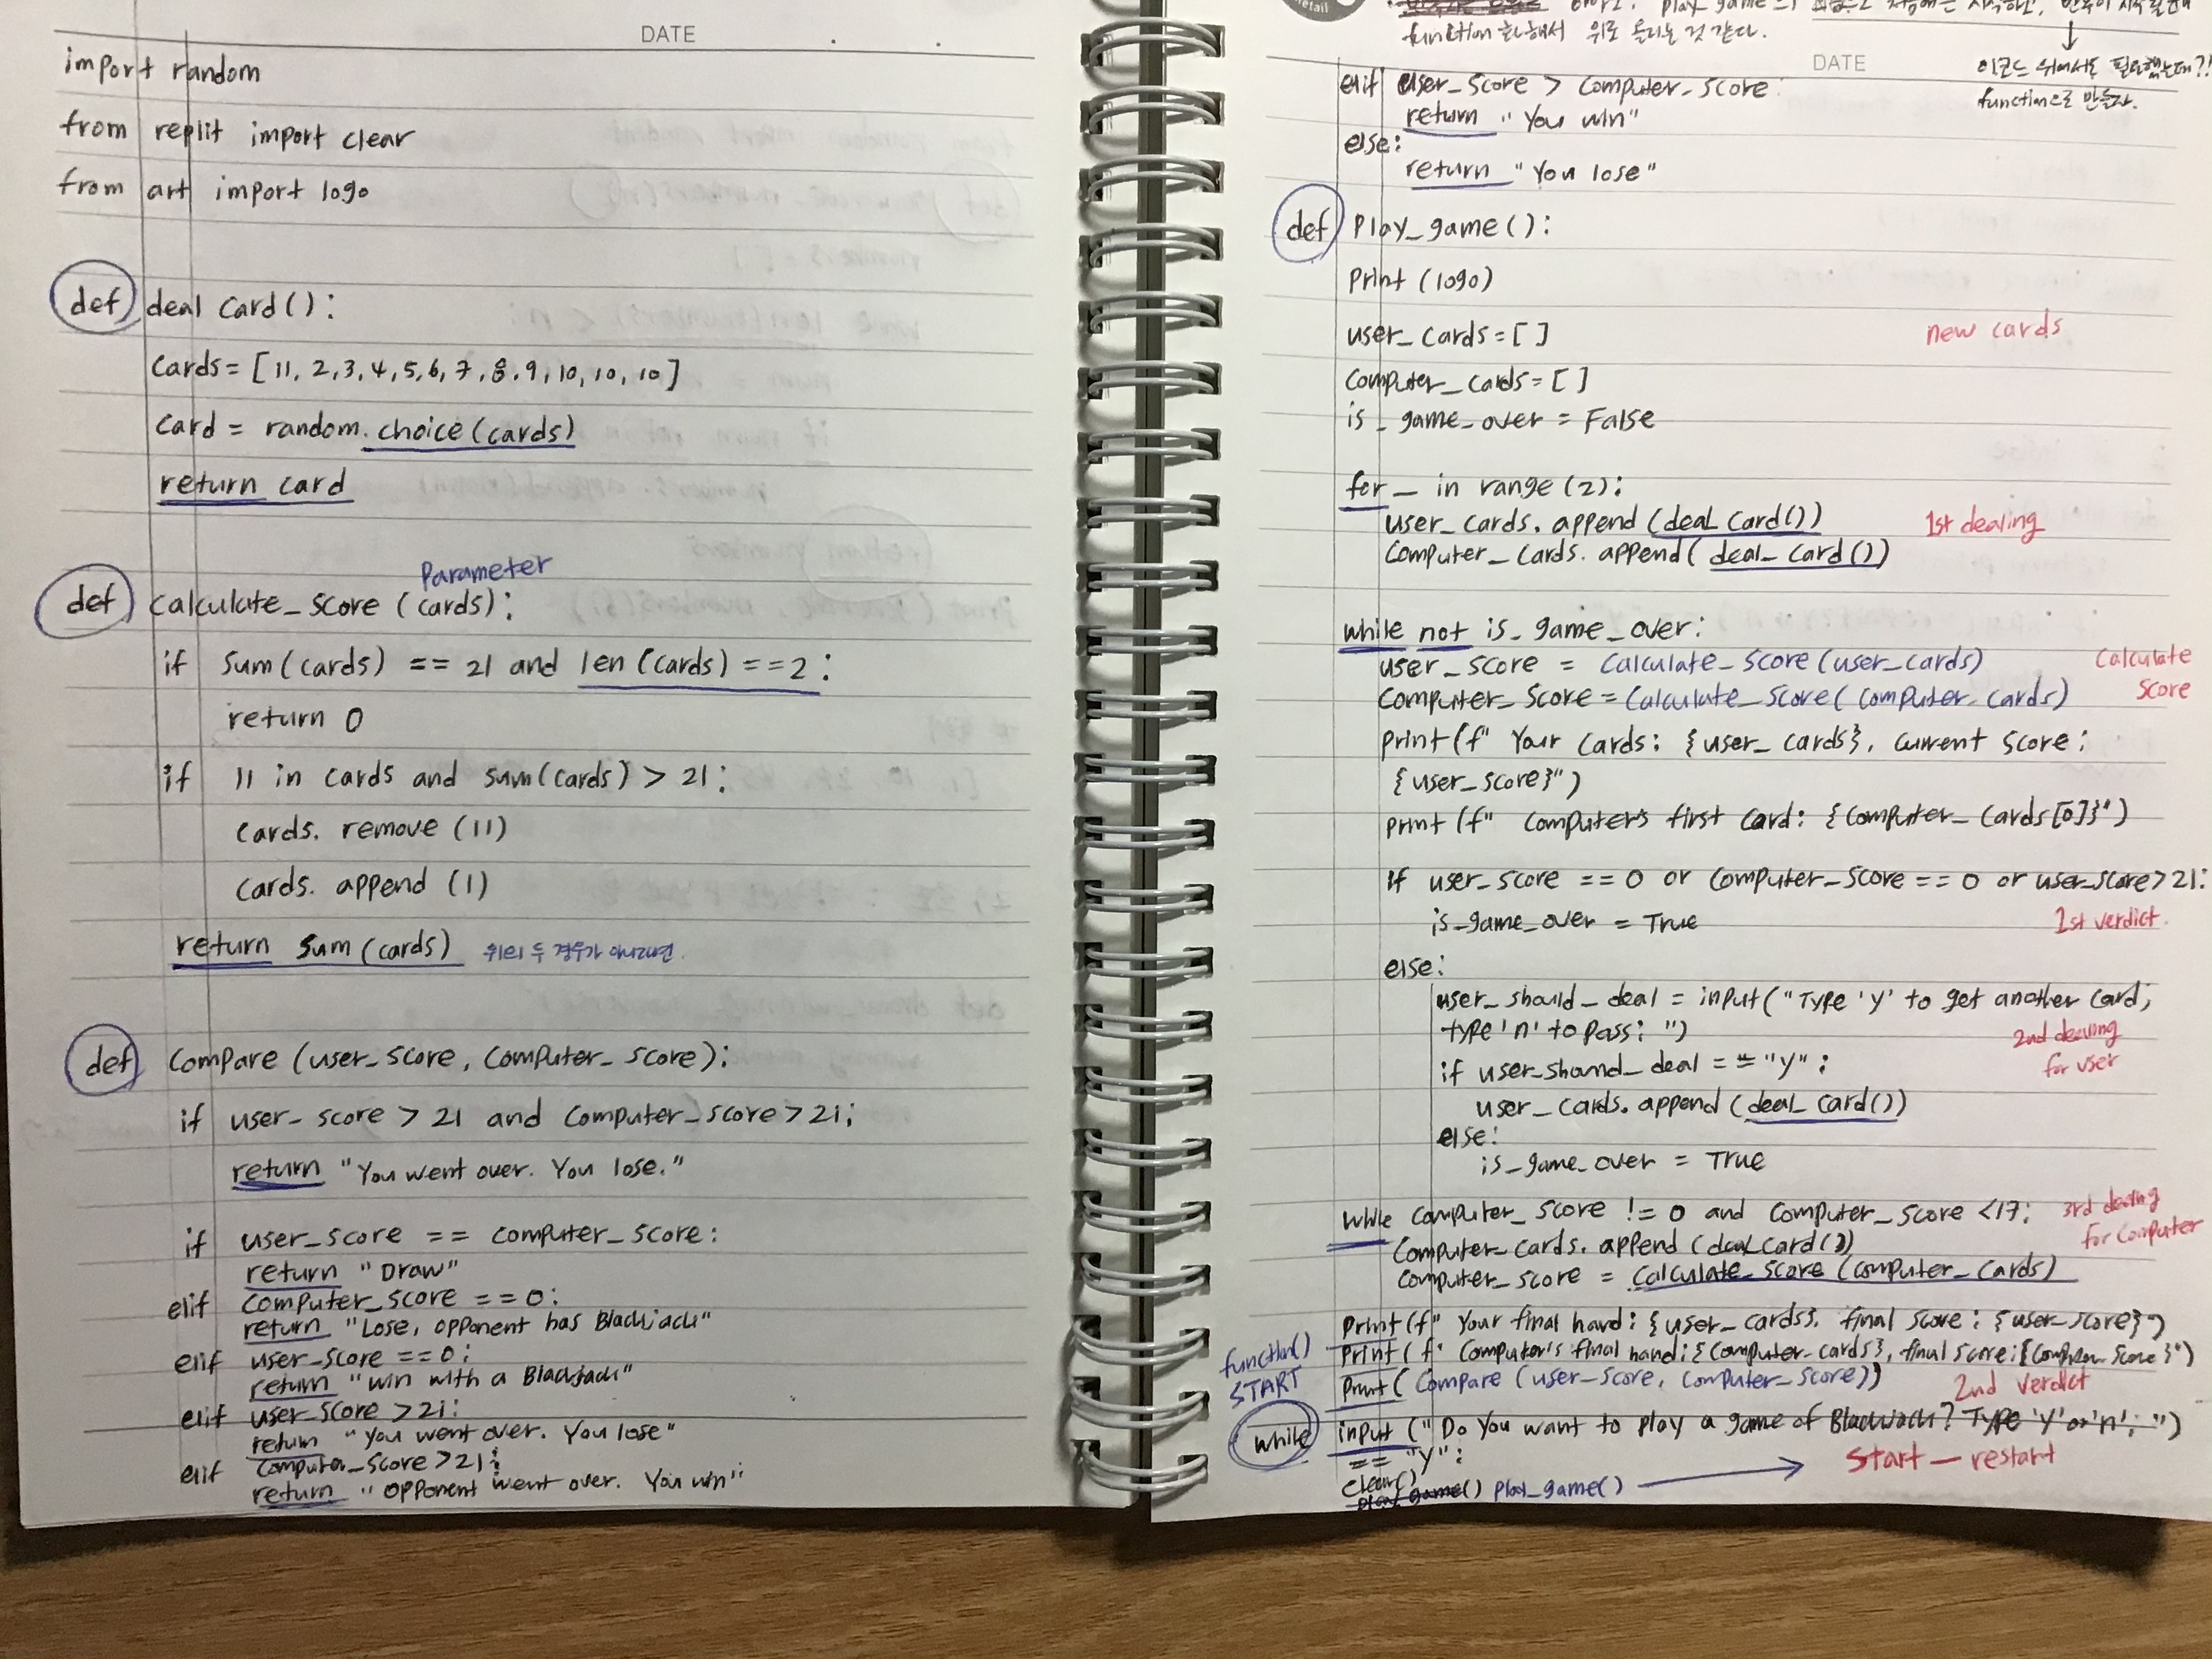 DATE
import random
from replit import clear
from art import logo
def deal card():
cards = [11, 2, 3, 4, 5, 6, 7, 8, 9, 10, 10, 10]
card = random.choice(cards)
return card
Parameter
def calculate_score (cards):
if sum(cards) == 21 and len(cards) == 2:
return 0
if 11 in cards and sum(cards) > 21:
cards.remove(11)
cards.append(1)
return sum(cards) 위의 두 경우가 아니라면.
def compare (user_score, computer_score):
if user_score > 21 and computer_score > 21:
return "You went over. You lose."
if user_score == computer_score:
return "Draw"
elif computer_score == 0:
return "Lose, opponent has Blackjack"
elif user_score == 0:
return "win with a Blackjack"
elif user_score > 21:
return "You went over. You lose"
elif computer_score > 21:
return "opponent went over. You win"
etail
function 화해서 위로 올리는 것 같다.
DATE
이코드 위에서도 필요했는데?!
function으로 만들자.
elif user_score > computer_score:
return "You win"
else:
return "You lose"
def play_game():
print(logo)
user_cards = [ ] new cards
computer_cards = [ ]
is_game_over = False
for _ in range(2):
user_cards.append(deal_card()) 1st dealing
computer_cards.append(deal_card())
while not is_game_over:
user_score = calculate_score(user_cards) calculate
computer_score = calculate_score(computer_cards) score
print(f" Your cards: {user_cards}, current score:
{user_score}")
print(f" computer's first card: {computer_cards[0]}")
if user_score == 0 or computer_score == 0 or user_score > 21:
is_game_over = True 1st verdict.
else:
user_should_deal = input("Type 'y' to get another card,
type 'n' to pass: ") 2nd dealing
for user
if user_should_deal == "y":
user_cards.append(deal_card())
else:
is_game_over = True
while computer_score != 0 and computer_score < 17: 3rd dealing
for computer
computer_cards.append(deal_card())
computer_score = calculate_score(computer_cards)
print(f" Your final hand: {user_cards}, final score: {user_score}")
function()
START
print(f" Computer's final hand: {computer_cards}, final score: {computer_score}")
print(compare (user_score, computer_score)) 2nd verdict
while input("Do you want to play a game of Blackjack? Type 'y' or 'n': ")
== "y":
start — restart
clear()
play_game() play_game()